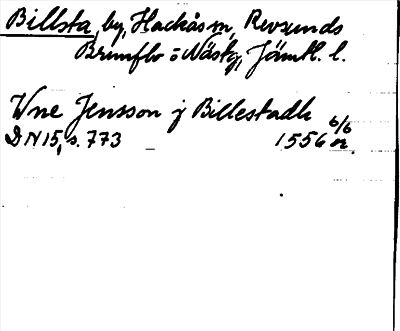 Billsta, by, Hackås sn, Revsunds
Brunflo o Näskt, Jämtl. l.
Vne Jensson j Billestadh 6/6
DN15, s. 773 1556 or.